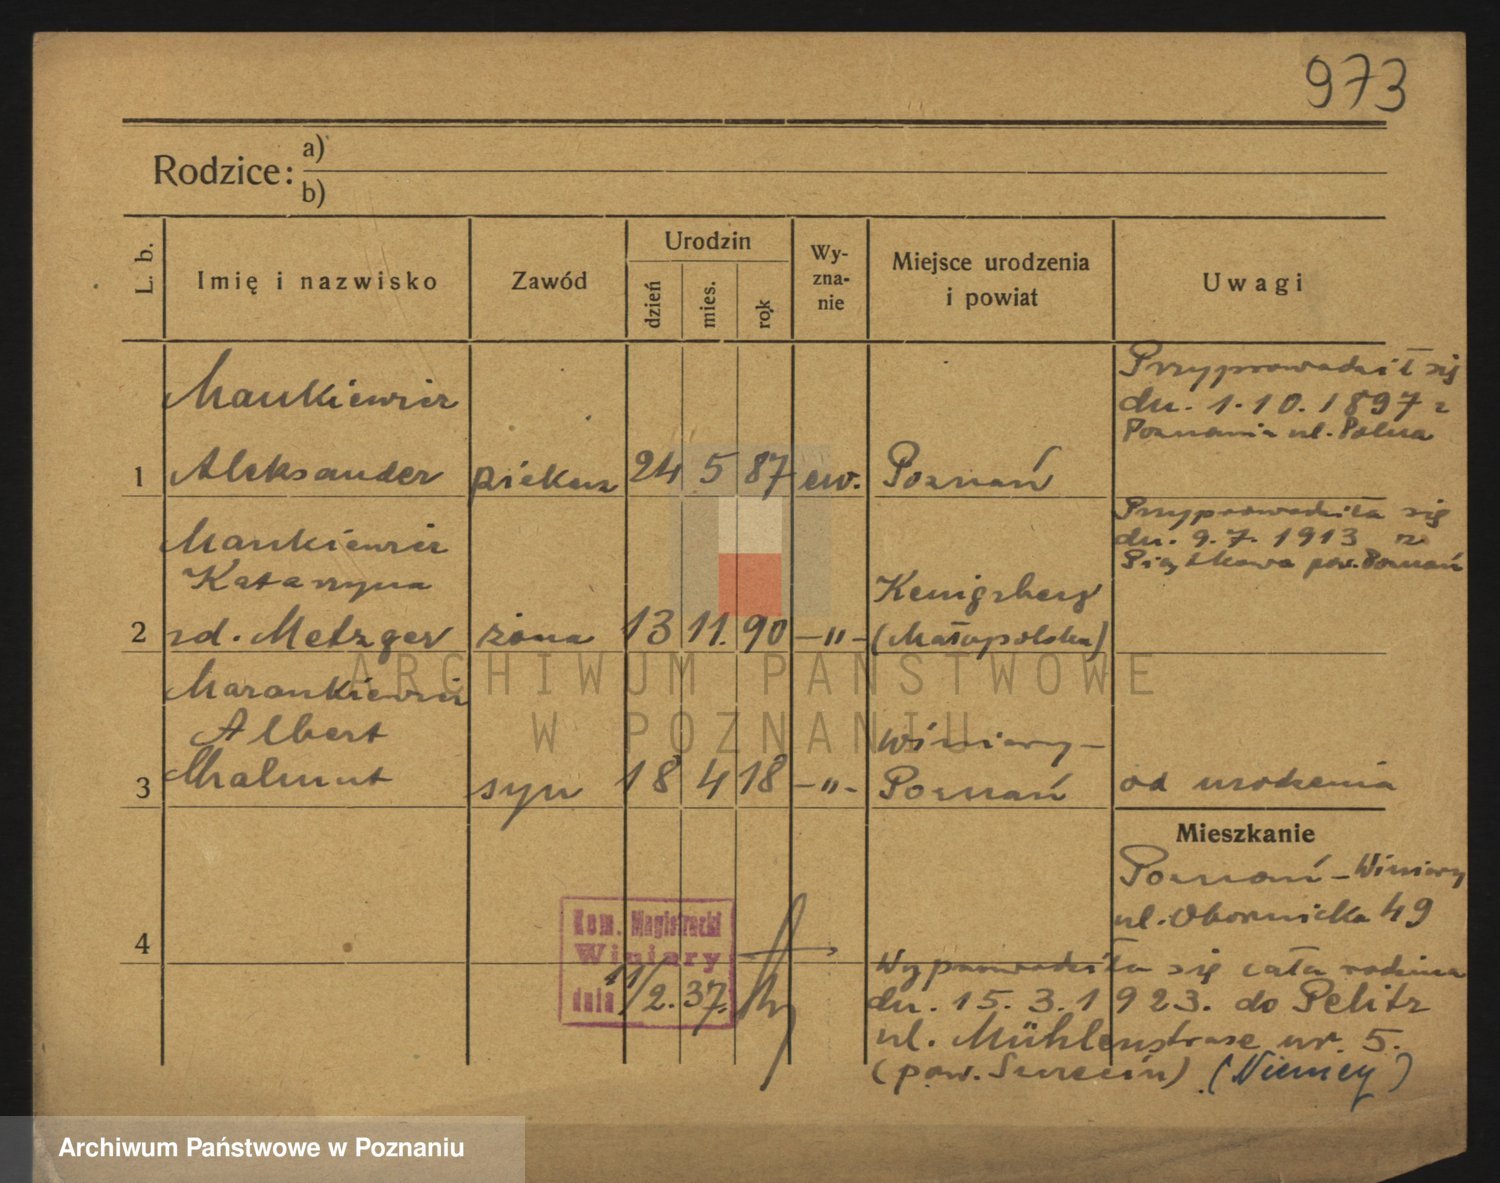 973
Rodzice:
a)
b)
L. b.
Imię i nazwisko
Zawód
Urodzin
dzień
mies.
rok
Wy-
zna-
nie
Miejsce urodzenia
i powiat
Uwagi
Mankiewicz
Przyprowadził się
dn. 1.10.1897 z
Poznania ul. Polna
1 Aleksander piekarz 24 5 87 ew. Poznań
Mankiewicz
Katarzyna
Przyprowadziła się
dn. 9.7.1913 z
Piątkowa pow. Poznań
Kenigsberg
2 zd. Metzger żona 13 11. 90 -"- (Małopolska)
Marankiewicz
Albert
Winiary-
3 Malmut syn 18 4 18 -"- Poznań od urodzenia
Mieszkanie
Poznań - Winiary
ul. Obornicka 49
4
Kom. Magistracki
Winiary
dnia 11/2.37.
Wyprowadziła się cała rodzina
dn. 15.3.1923. do Pelitz
ul. Mühlenstrase nr. 5.
(pow. Szczecin) (Niemcy)
ARCHIWUM PAŃSTWOWE
W POZNANIU
Archiwum Państwowe w Poznaniu